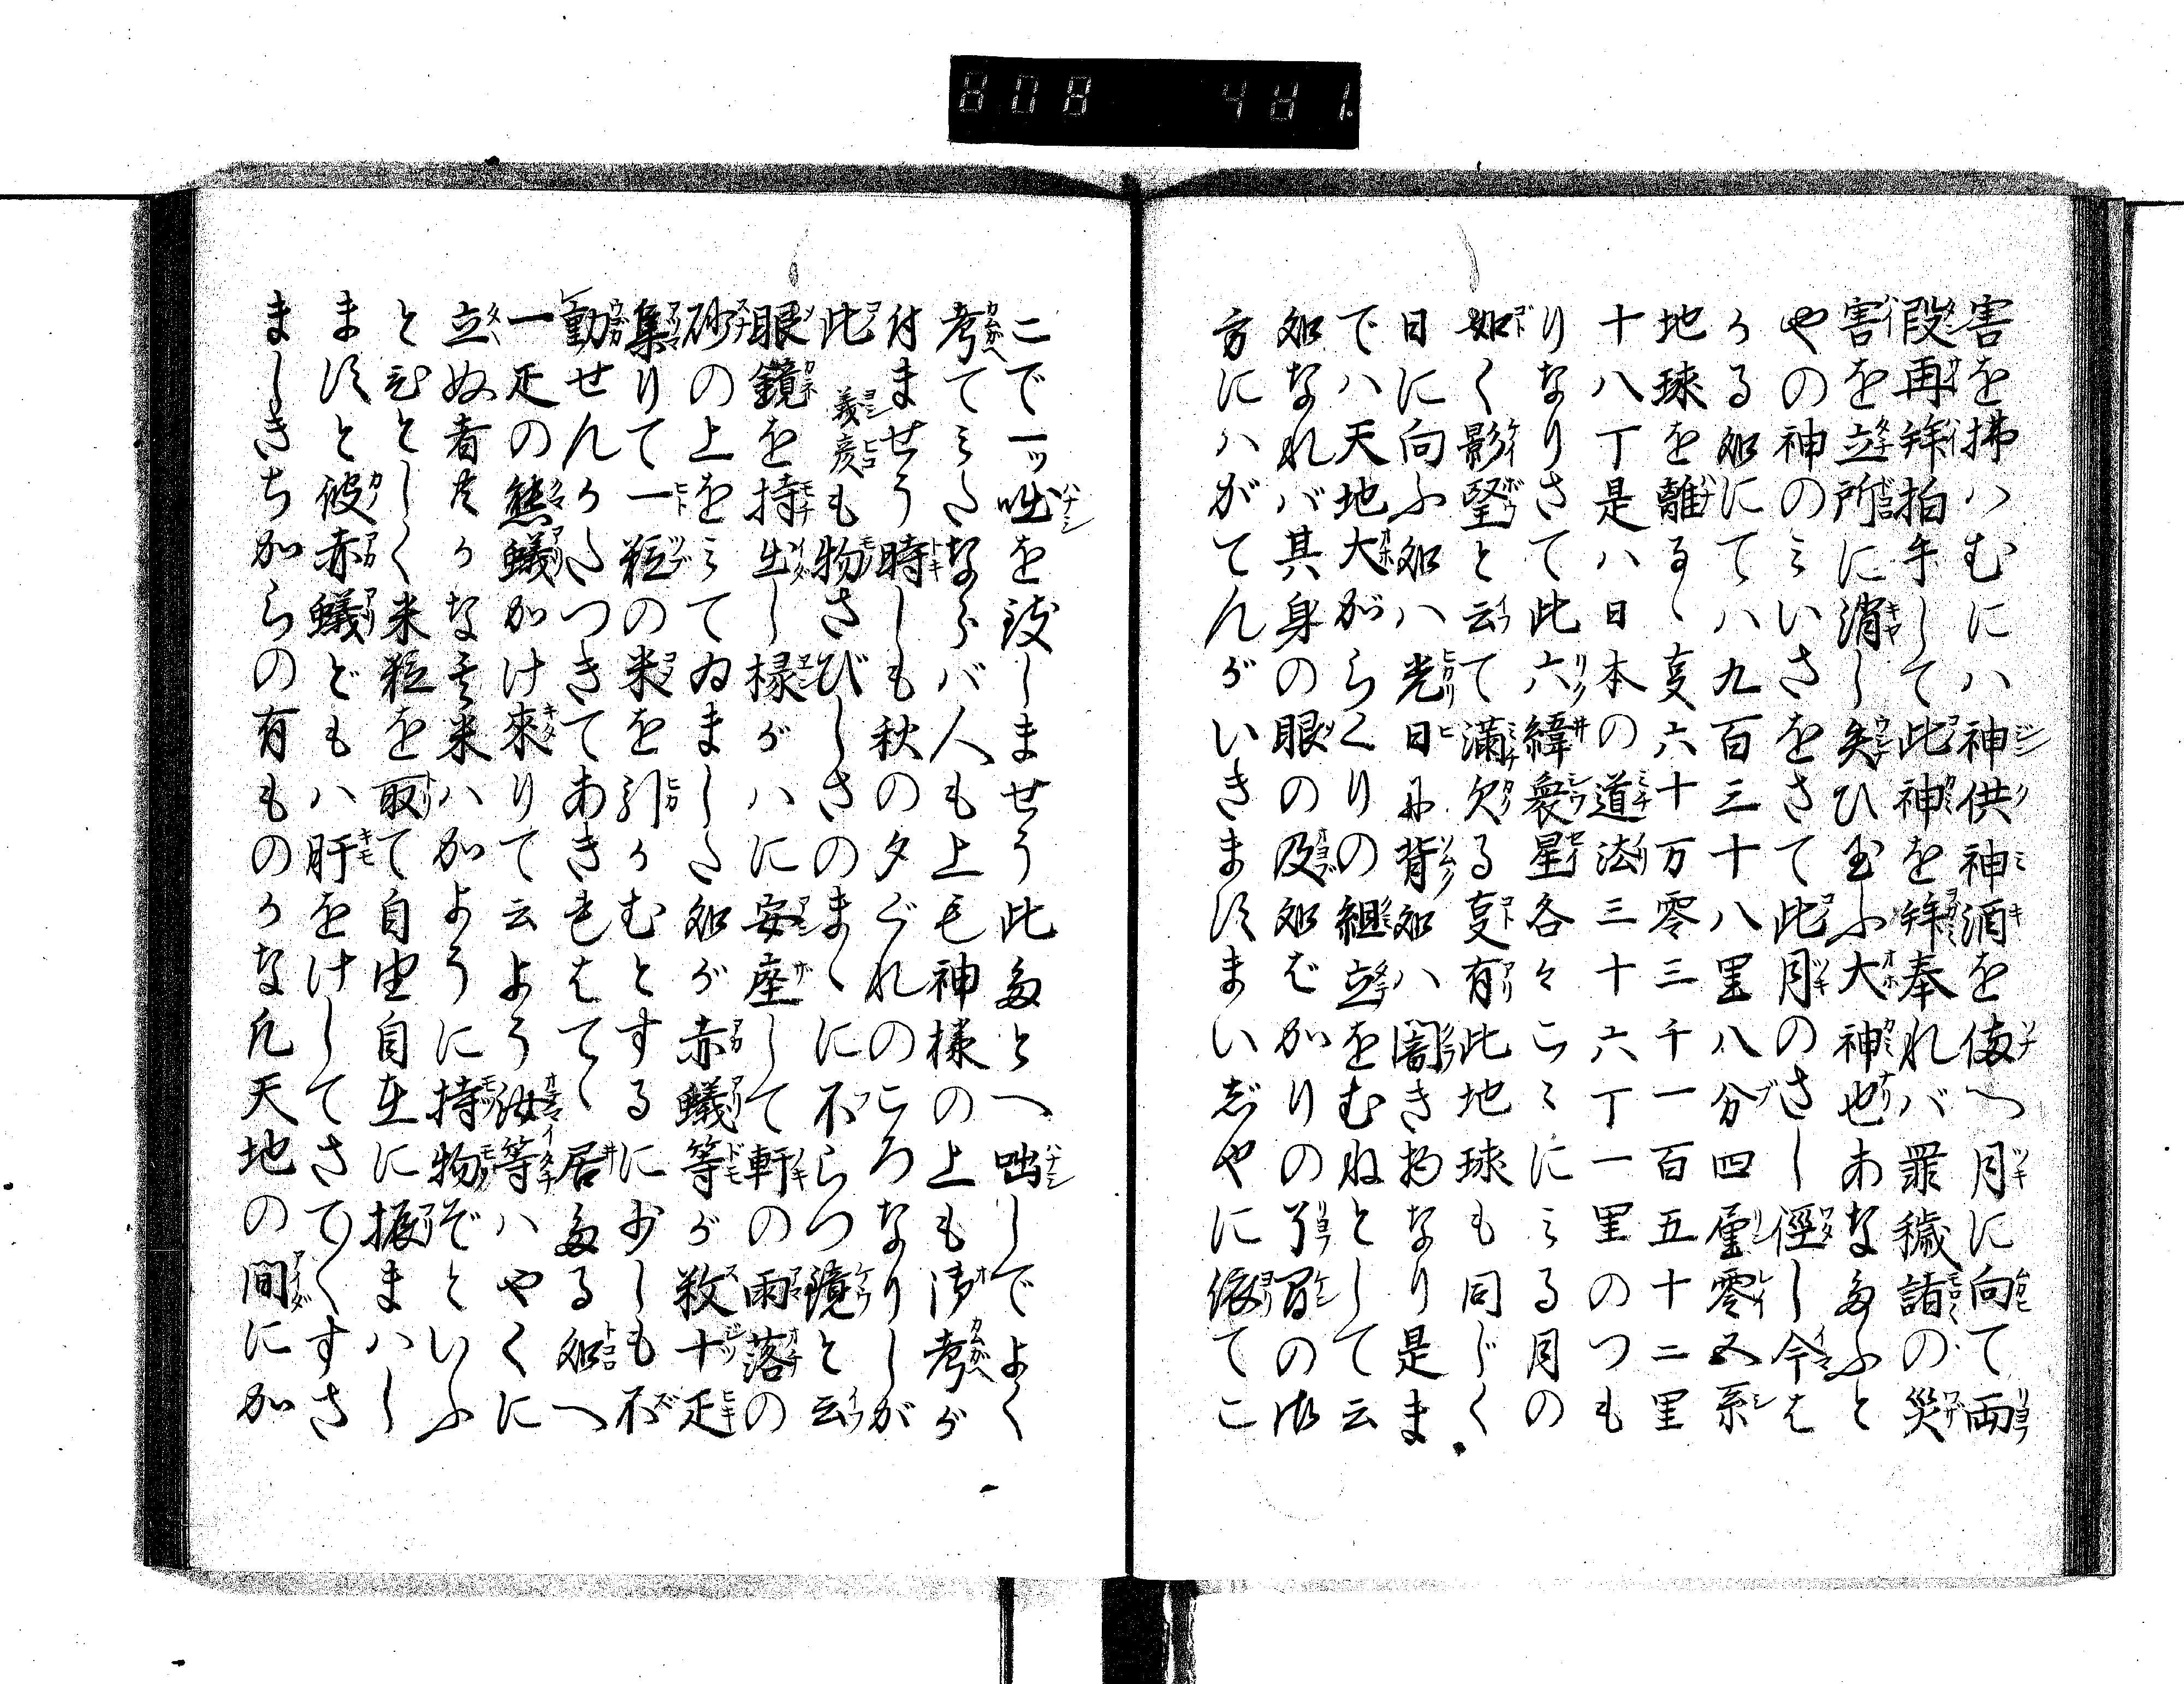 害を拂ハむにハ神供神酒を備へ月に向て両
段再拜拍手して此神を拜奉れバ罪穢諸の災
害を立所に消し失ひ玉ふ大神也あなたふと
やの神のミいさをさて此月のさし徑し今は
かる処にてハ九百三十八里八分四厘零五系
地球を離るゝ㕝六十万零三千一百五十二里
十八丁是ハ日本の道法三十六丁一里のつも
りなりさて此六緯衆星各々こゝにミる月の
如く影堅と云て満欠る㕝有此地球も同じく
日に向ふ処ハ光日に背処ハ闇き物なり是ま
でハ天地大がらくりの組立をむねとして云
処なれバ其身の眼の及処ばかりの了簡の御
方にハがてんがいきま須まい志やに依てこ
こで一ッ咄を致しませう此たとへ咄しでよく
考てミたならバ人も上も神様の上も御考が
付ませう時しも秋の夕ぐれのころなりしが
此義彦も物さびしさのまゝに不らつ鏡と云
眼鏡を持出し椽がハに安座して軒の雨落の
砂の上をミてゐました処が赤蟻等が数十疋
集りて一粒の米を引かむとするに少しも不
動せんかたつきてあきれはてゝ居たる処へ
一疋の熊蟻がけ來りて云よう汝等ハやくに
立ぬ者共かな其米ハかように持物ぞといふ
とひとしく米粒を取て自由自在に振まハし
ま須と彼赤蟻どもハ肝をけしてさてゝくすさ
ましきちからの有ものかな凡天地の間にか
808 481